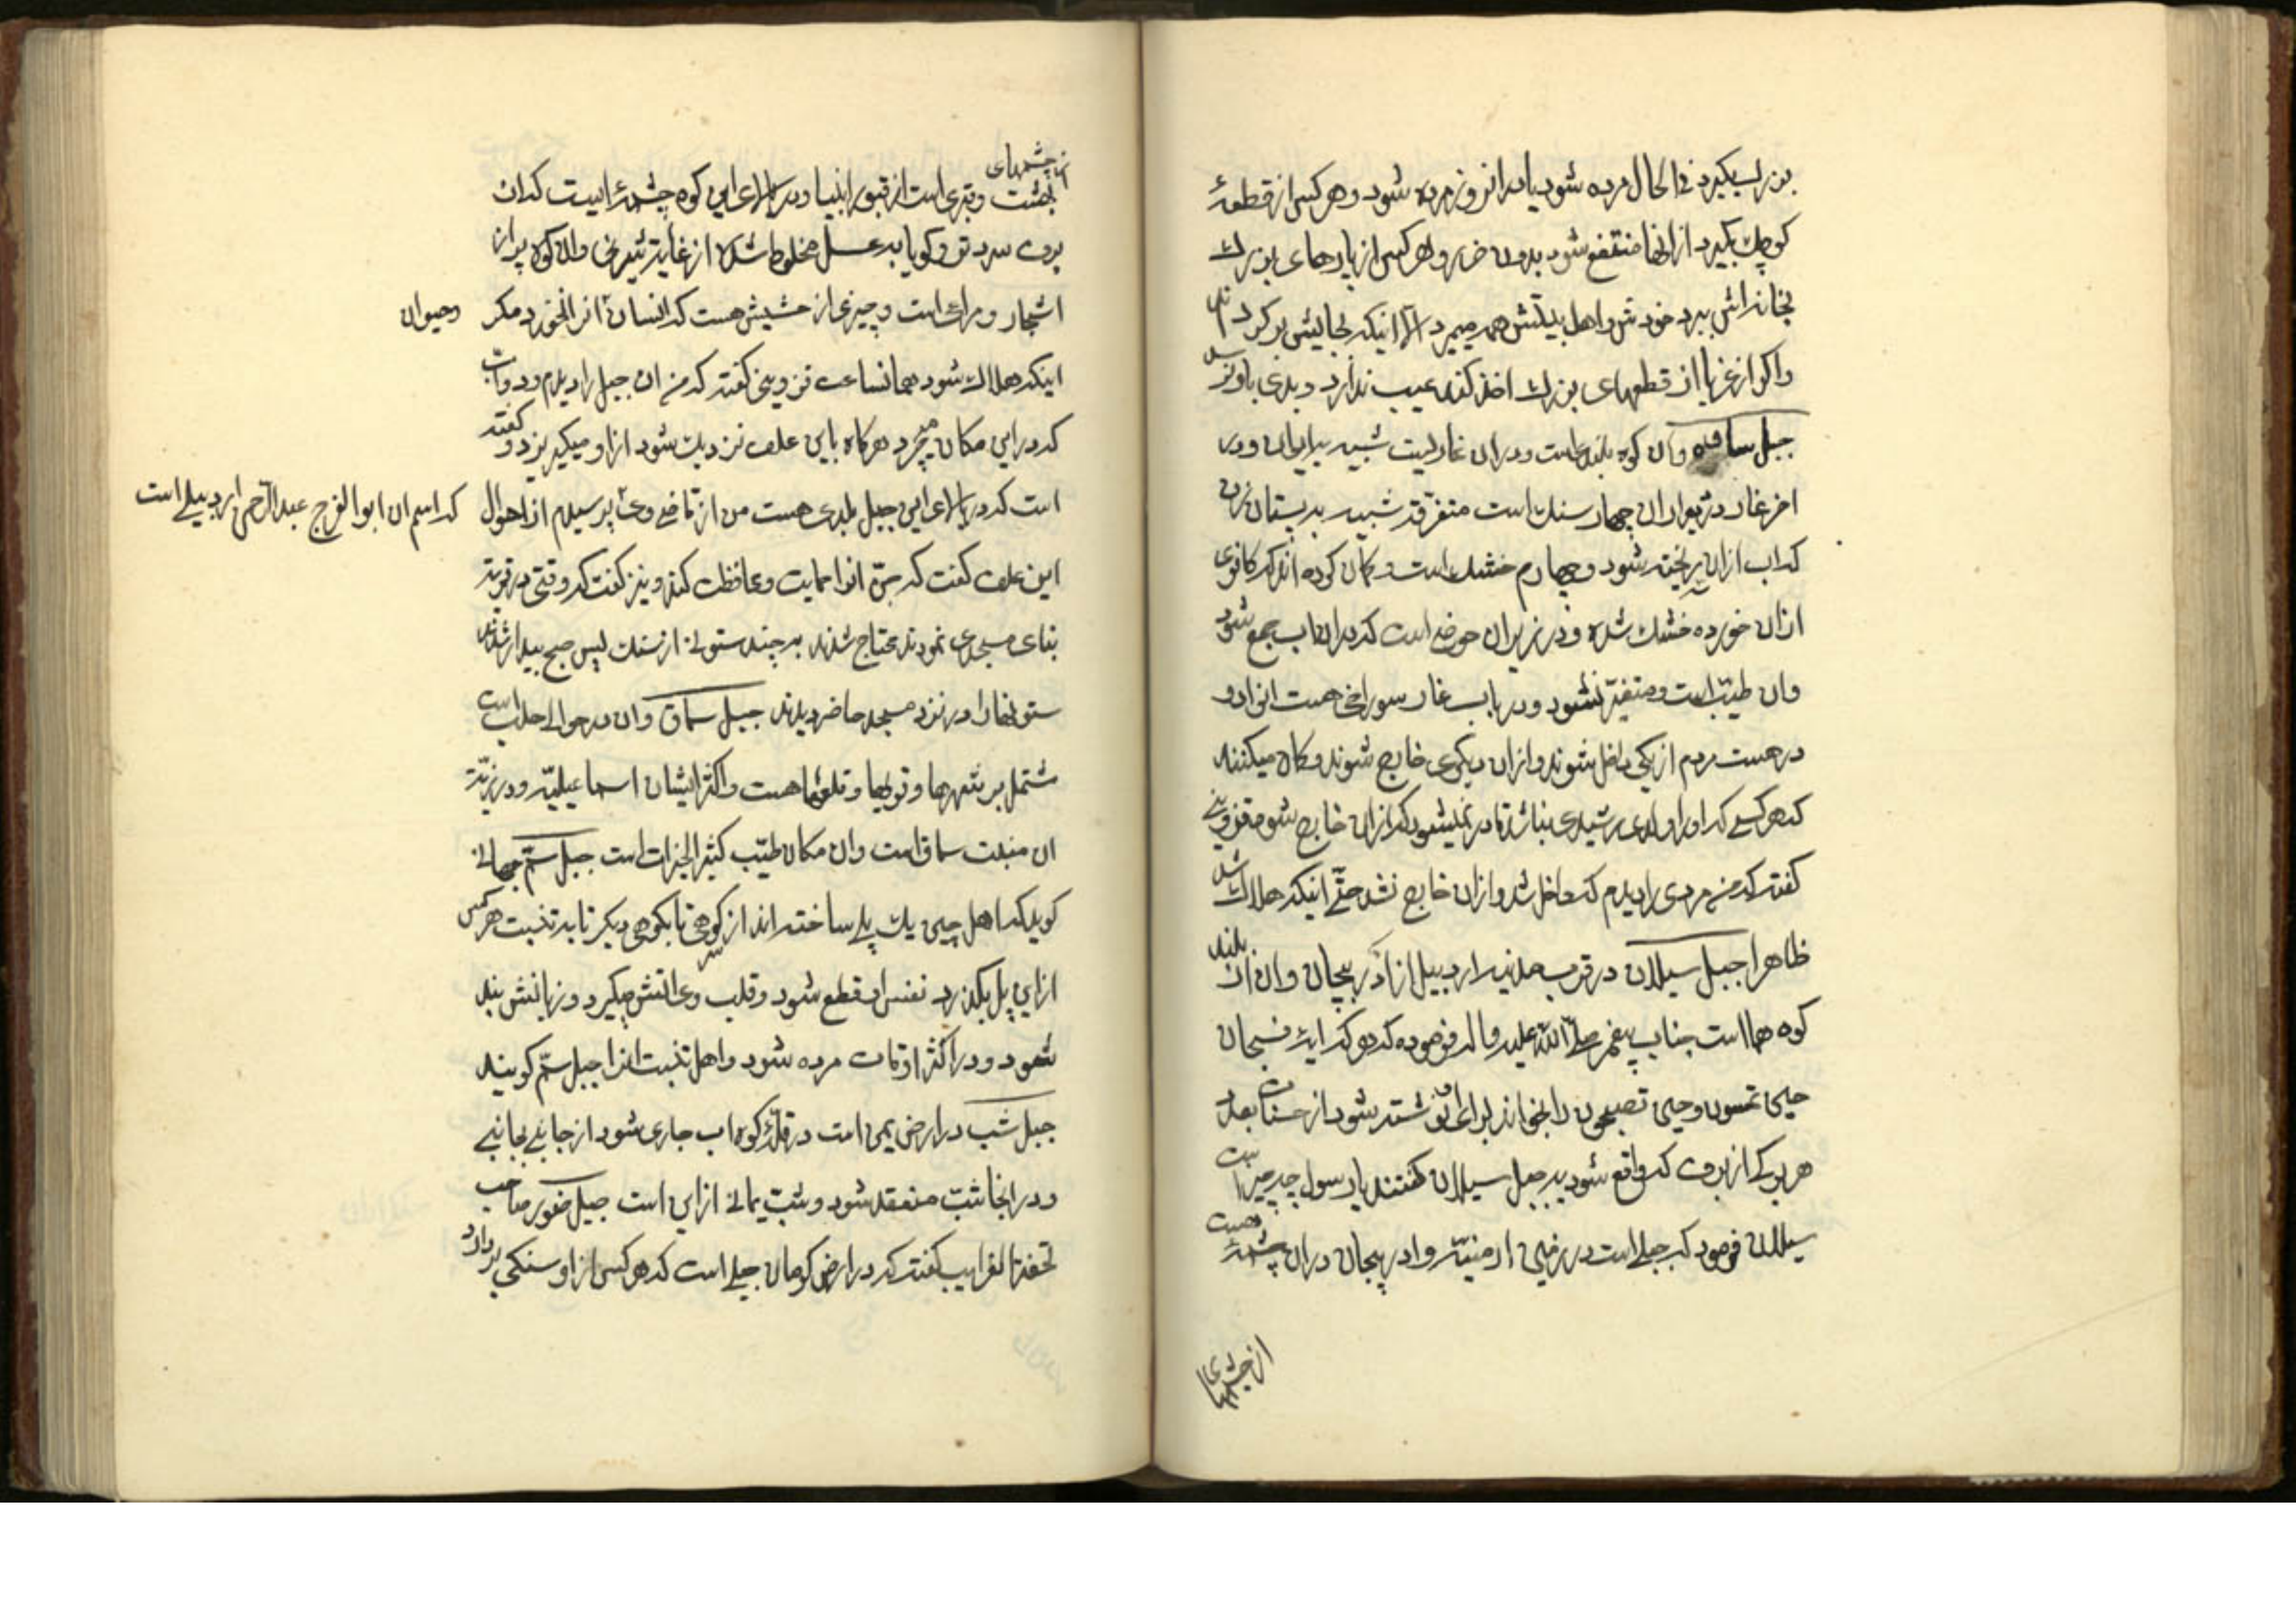 بزرك بگیرد فی الحال مرده شود یا در انروز مرده شود و هر کس از قطعهٔ
کوچك بگیرد از انها منتفع شود بدون ضرر و هر کس از پارهای بزرك
بخانه اش ببرد خودش و اهل بیتش همه میمرد الا اینکه بجایش برگردند
و اگر از غربا از قطعهای بزرك اخذ کند عیب ندارد و بدی باو نرسد
جبل ساوه و آن کوه بلندی است و در ان غاریست شبیه بایوان و در
اخر غار در دیوار ان چهار سنك است متفرقه شبیه به پستان زن
که اب از ان ریخته شود و چهارم خشك است و گمان کرده اند که کافری
از ان خورده خشك شده و در زیر ان حوضی است که در ان اب جمع شود
و ان طیب است و متغیر نشود و در باب غار سوراخی هست انرا دو
در هست مردم از یکی داخل شوند و از ان دیگری خارج شوند و گمان میکنند
که هر کسی که او را ولدی رشیدی نباشد قادر نمیشود که از ان خارج شود قزوینی
گفته که من مردی را دیدم که داخل شد و از ان خارج نشد حتی اینکه هلاك شد
ظاهرا جبل سیلان در قرب مدینه اردبیل از اذربیجان و ان از بلند
کوه ها است جناب پیغمبر صلی الله علیه و اله فرموده که هر که ایه فسبحان
حین تمسون و حین تصبحون را بخواند برای او نوشته شود از حسنات بعدد
هر برکی از برف که واقع شود بر جبل سیلان گفتند یا رسول چه چیز است
سیلان فرمود که جبلی است در زمین ارمنیه و اذربیجان در ان چشمهٔ هست
از چشمهای
از چشمهای
بهشت و قبری است از قبور انبیا و در بالای این کوه چشمهٔ ایست که ان
برف سرد تر و گویا به عسل مخلوط شده از غایة شیرینی و ان کوه پر از
اشجار و مراع است و چیزی از حشیش هست که انسان انرا نخورد مگر
و حیوان
اینکه هلاك شود همانساعت قزوینی گفته که من ان جبل را دیدم و دواب
که در این مکان میچرد هرگاه باین علف نزدیك شود از او میگریزد و گفته
است که در بالای این جبل بلدی هست من از قاضی وی پرسیدم از احوال
که اسم ان ابو الفرج عبد الرحمن اردبیلی است
این علف گفت که جن انرا حمایت و محافظت کند و نیز گفت که وقتی در قریه
بنای مسجدی نمودند محتاج شدند به چند ستونی از سنك پس صبح بیدار شدند
ستونها را در نزد مسجد حاضر دیدند جبل سماق و ان در حوالی حلب است
مشتمل بر شهرها و قریها و قلعها هست و اکثر ایشان اسماعیلیه و در زمین
ان منبت سماق است و ان مکان طیب کثیر الخیرات است جبل سم جیهانی
گوید که اهل چین یك پلی ساخته اند از کوهی تا بکوهی دیگر تا به تبت هر کس
از این پل بگذرد نفس او قطع شود و قلب وی اتش میگیرد و زبانش بند
شود و در اکثر اوقات مرده شود و اهل تبت انرا جبل سم گویند
جبل شب در ارض یمن است در قلهٔ کوه اب جاری شود از جانبی بجانبی
و در انجا شب منعقد شود و شب یمانی از این است جبل صور صاحب
تحفة الغرایب گفته که در ارض کرمان جبلی است که هر کس از او سنگی بردارد